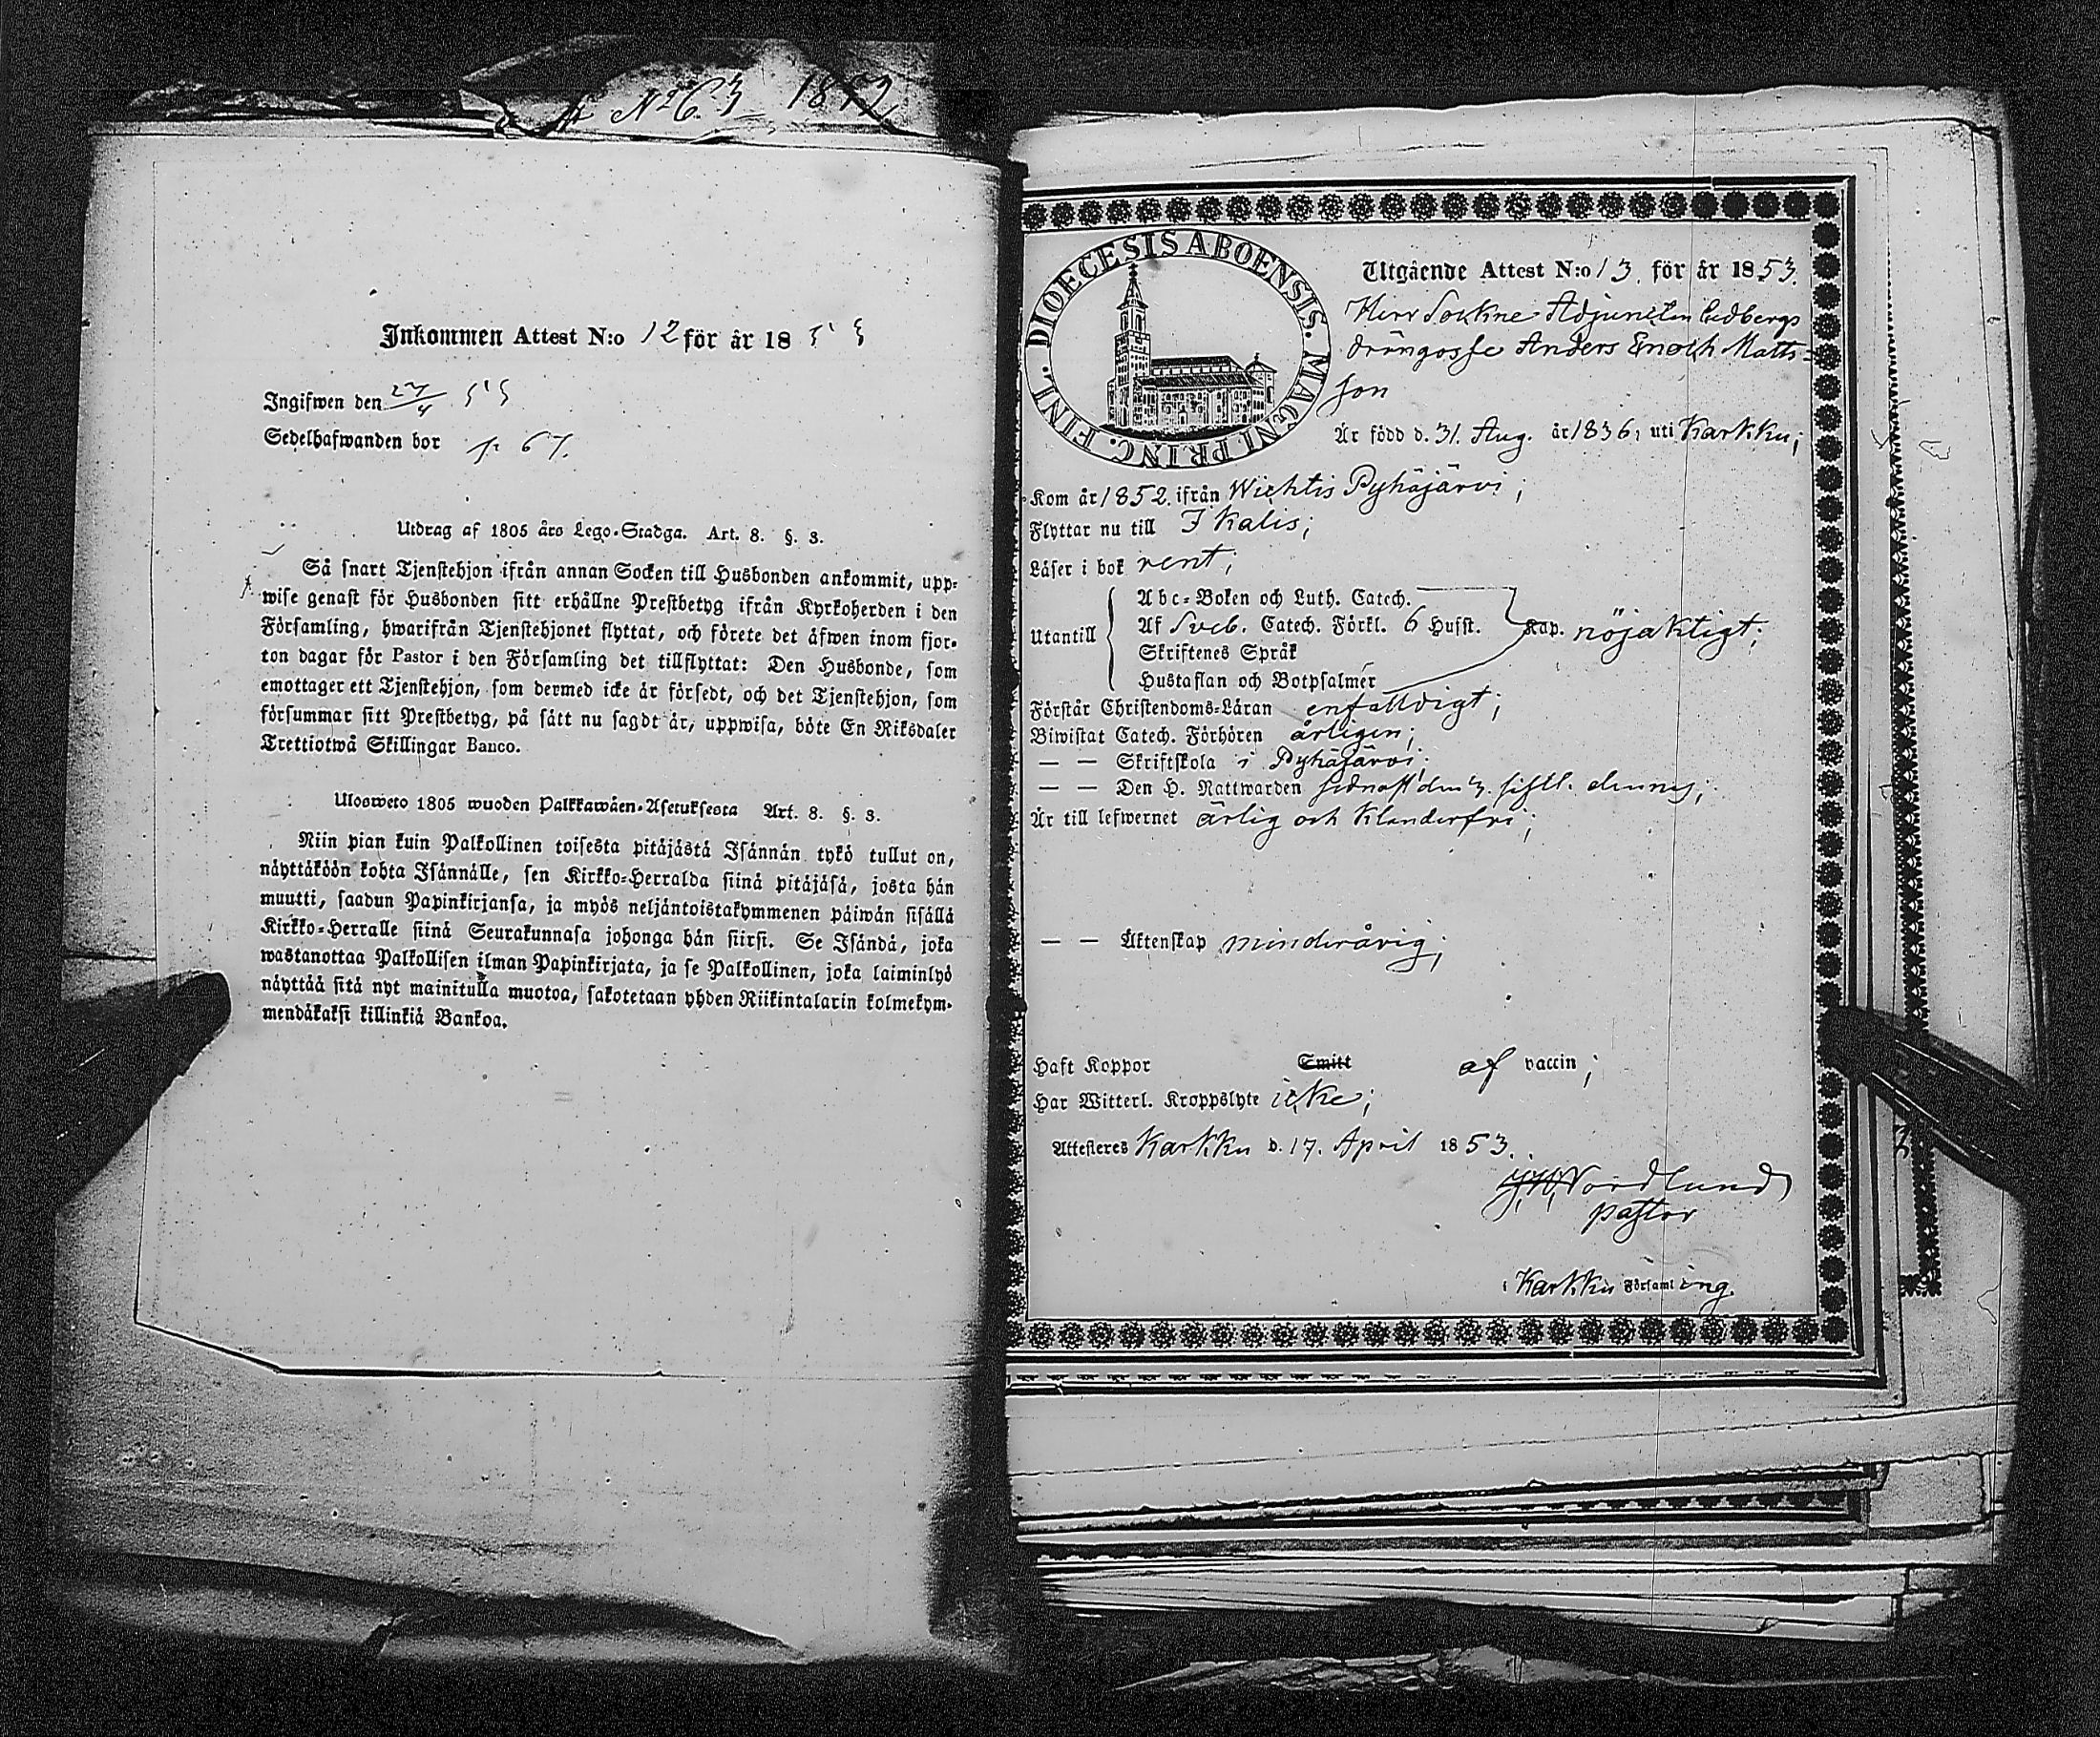 № 63 1872
Inkommen Attest N:o 12 för år 18 53
Ingifwen den 27/4 53
Sedelhafwanden bor p 67.
Utdrag af 1805 års Lego-Stadga. Art. 8. §. 3.
Så snart Tjenstehjon ifrån annan Socken till Husbonden ankommit, upp-
wise genast för Husbonden sitt erhållne Prestbetyg ifrån Kyrkoherden i den
Församling, hwarifrån Tjenstehjonet flyttat, och förete det äfwen inom fjor-
ton dagar för Pastor i den Församling det tillflyttat: Den Husbonde, som
emottager ett Tjenstehjon, som dermed icke är försedt, och det Tjenstehjon, som
försummar sitt Prestbetyg, på sätt nu sagdt är, uppwisa, böte En Riksdaler
Trettiotwå Skillingar Banco.
Ulosweto 1805 wuoden Palkkawäen-Asetuksesta Art. 8. §. 3.
Niin pian kuin Palkollinen toisesta pitäjästä Isännän tykö tullut on,
näyttäköön kohta Isännälle, sen Kirkko-Herralda siinä pitäjäsä, josta hän
muutti, saadun Papinkirjansa, ja myös neljäntoistakymmenen päiwän sisällä
Kirkko-Herralle siinä Seurakunnasa johonga hän siirsi. Se Isändä, joka
wastanottaa Palkollisen ilman Papinkirjata, ja se Palkollinen, joka laiminlyö
näyttää sitä nyt mainitulla muotoa, sakotetaan yhden Riikintalarin kolmekym-
mendäkaksi killinkiä Bankoa.
DIOECESIS ABOENSIS. MAGNI PRINC. FINL.
Utgående Attest N:o 13. för år 1853.
Herr Sockne Adjuncten Eedbergs
drängosse Anders Enoch Matts-
son
Är född d. 31. Aug. år 1836, uti Karkku;
Kom år 1852. ifrån Wichtis Pyhäjärvi;
Flyttar nu till Ikalis;
Läser i bok rent;
Utantill
Abc-Boken och Luth. Catech.
Af Sveb. Catech. Förkl. 6 Hufst. Kap. nöjaktigt;
Skriftenes Språk
Hustaflan och Botpsalmer
Förstår Christendoms-Läran enfalldigt;
Biwistat Catech. Förhören årligen;
— — Skriftskola i Pyhäjärvi;
— — Den H. Nattwarden sednast den 3. sistl.
Är till lefwernet ärlig och klanderfri;
— — Äktenskap minderårig;
Haft Koppor Smitt af vaccin;
Har Witterl. Kroppslyte icke;
Attesteres Karkku d. 17. April 1853.
Nordlund
pastor
i Karkku Församling.